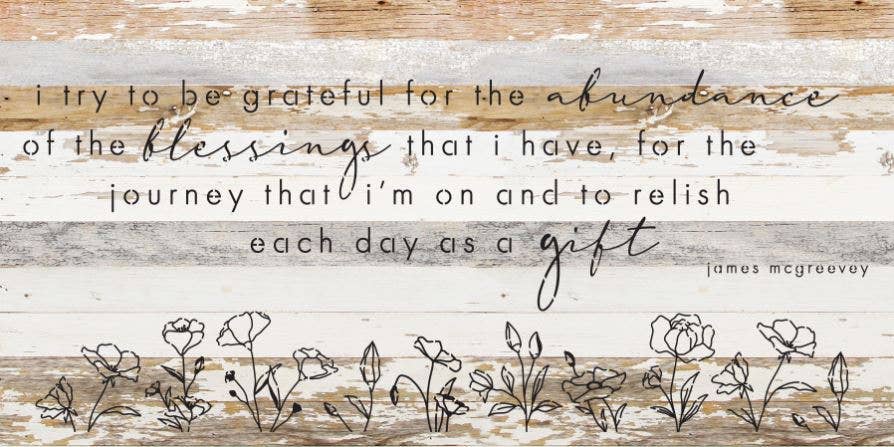 i try to be grateful for the abundance
of the blessings that i have, for the
journey that i'm on and to relish
each day as a gift
james mcgreevey